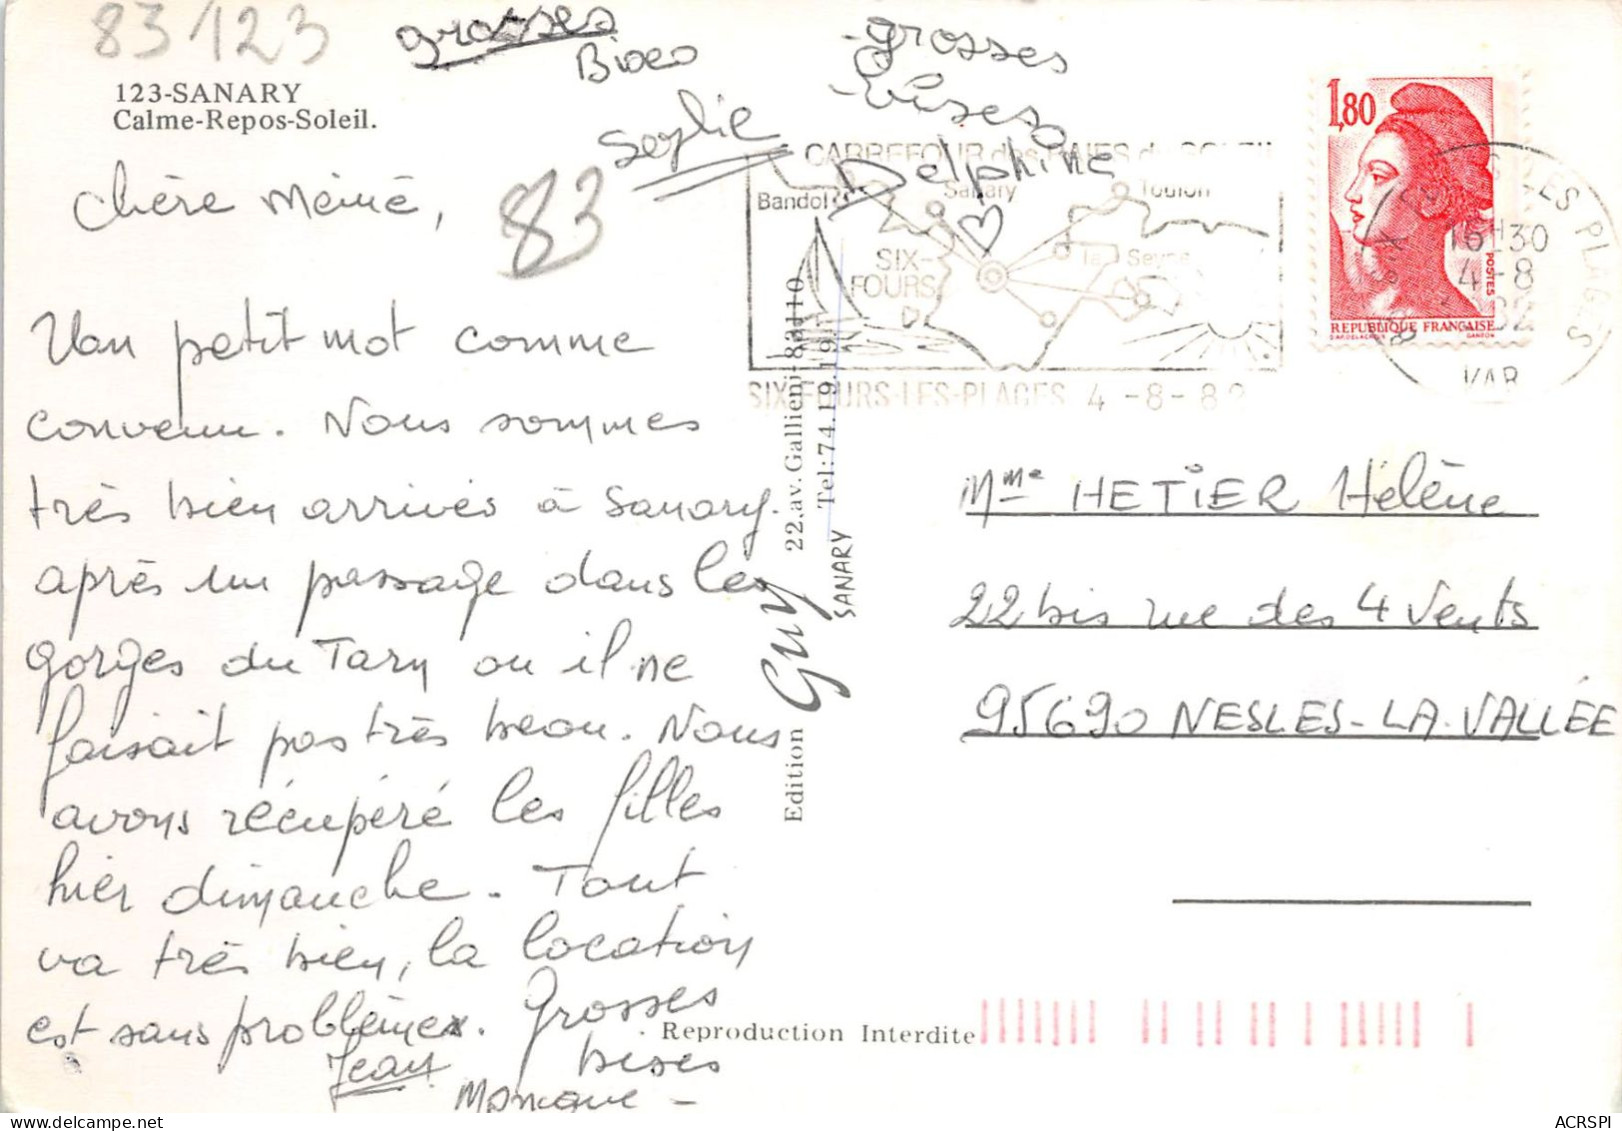 83/123
grosses
Bises
Sophie
grosses
bises
Delphine
123-SANARY
Calme-Repos-Soleil.
83
chère Mémé,
Un petit mot comme
convenu. Nous sommes
très bien arrivés à Sanary.
après un passage dans les
gorges du Tarn ou il ne
faisait pas très beau. Nous
avons récupéré les filles
hier dimanche. Tout
va très bien, la location
est sans problèmes. Grosses
bises
Jean
Monique -
CARREFOUR des BAIES du SOLEIL
Bandol
Sanary
Toulon
SIX-
FOURS
la Seyne
SIX-FOURS-LES-PLAGES 4-8-82
1,80
POSTES
REPUBLIQUE FRANÇAISE
D'AP. DELACROIX
GANDON
LES PLAGES
16H30
4-8
82
VAR
Edition Guy 22.av.Gallieni-83110
Tel:74.19.19
SANARY
Mme HETIER Hélène
22 bis rue des 4 Vents
95690 NESLES-LA-VALLÉE
Reproduction Interdite
ACRSPI